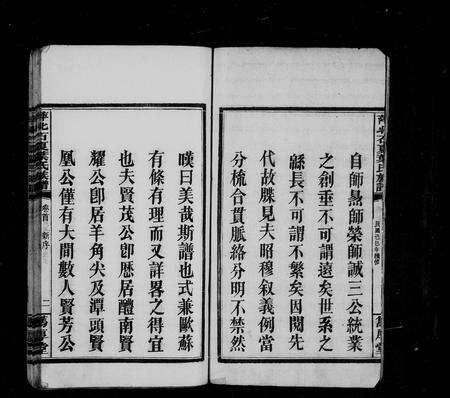 自師勗師榮師誠三公統業
之創垂不可謂遠矣世系之
緜長不可謂不繁矣因閱先
代故牒見夫昭穆叙義例當
分梳合貫脈絡分明不禁然
嘆曰美哉斯譜也式兼歐蘇
有條有理而又詳畧之得宜
也夫賢茂公卽歷居醴南賢
耀公卽居羊角尖及潭頭賢
凰公僅有大間數人賢芳公
卷首
新序
二
萬厚堂